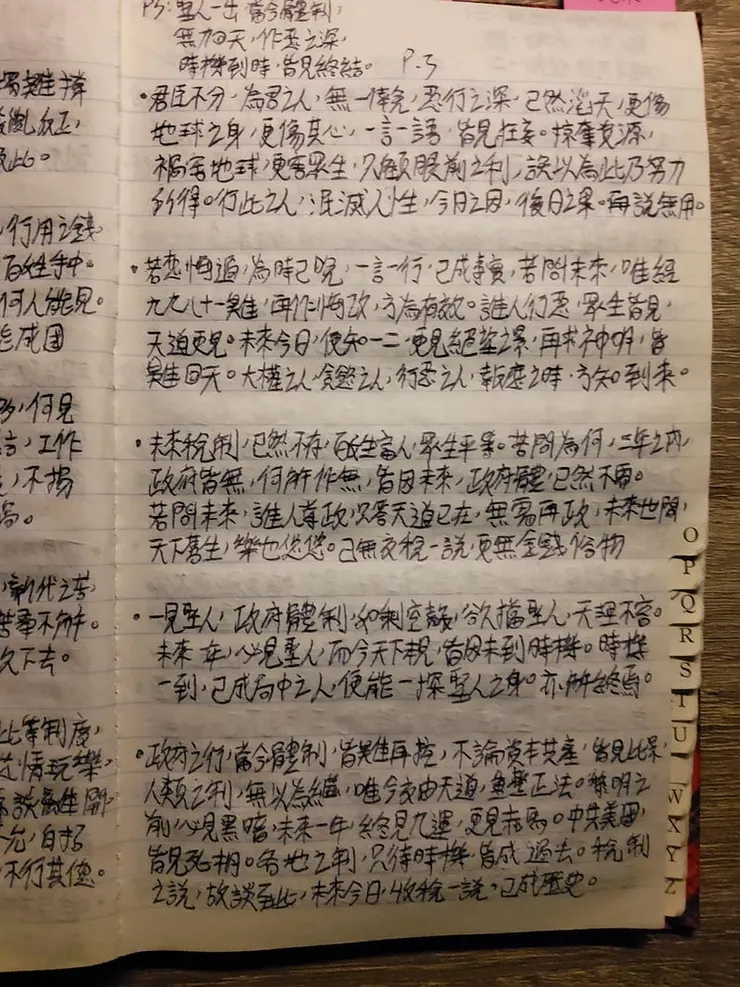 獨難擇
亂紅正,
此。
行用之錢
百姓手中。
何人能見。
能成團
何見
工作
不揚
新代之苦
苦牽不解。
次下去。
此等制度,
從情玩樂,
談
自招
不行其德。
PS:聖人一出,當今體制,
無力回天,作惡之深,
時機到時,皆見終結。 P.3
•君臣不分,為君之人,無一倖免,惡行之深,已然滔天,更傷
地球之身,更傷其心,一言一語,皆見狂妄。掠奪資源,
禍害地球,更害眾生,只顧眼前之利,誤以為此乃努力
所得。行此之人,泯滅人性,今日之因,後日之果。再說無用。
•若想悔過,為時已晚,一言一行,已成事實,若問未來,唯經
九九八十一難,再作悔改,方為有效。誰人行惡,眾生皆見,
天道更見。未來今日,便知一二,更見絕望之累,再求神明,皆
難回天。大權之人,貪慾之人,行惡之人,報應之時,方知到來。
•未來稅制,已然不存,百姓富人,眾生平等。若問為何,三年之內,
政府皆無,何所作無,皆因未來,政府體,已然不需。
若問未來,誰人尊政,只答天道已在,無需再政,未來世間,
天下蒼生,樂也悠悠。已無交稅一說,更無金錢俗物
•一見聖人,政府體制,如剩空殼,欲擋聖人,天理不容。
未來一年,必見聖人,而今天下亂,皆因未到時機。時機
一到,已成局中之人,便能一探聖人之身。亦解終焉。
•政府之行,當今體制,皆難再控,不論資本共產,皆見此果,
人類之制,無以為繼,唯今交由天道,重整正法。黎明之
前,必見黑暗,未來一年,終見九運,更見赤馬。中共美國,
皆見死期。各地之制,只待時機,皆成過去。稅制
之說,故談至此,未來今日,收稅一說,已成歷史。
O
P
Q
R
S
T
U
W
X
Y
Z